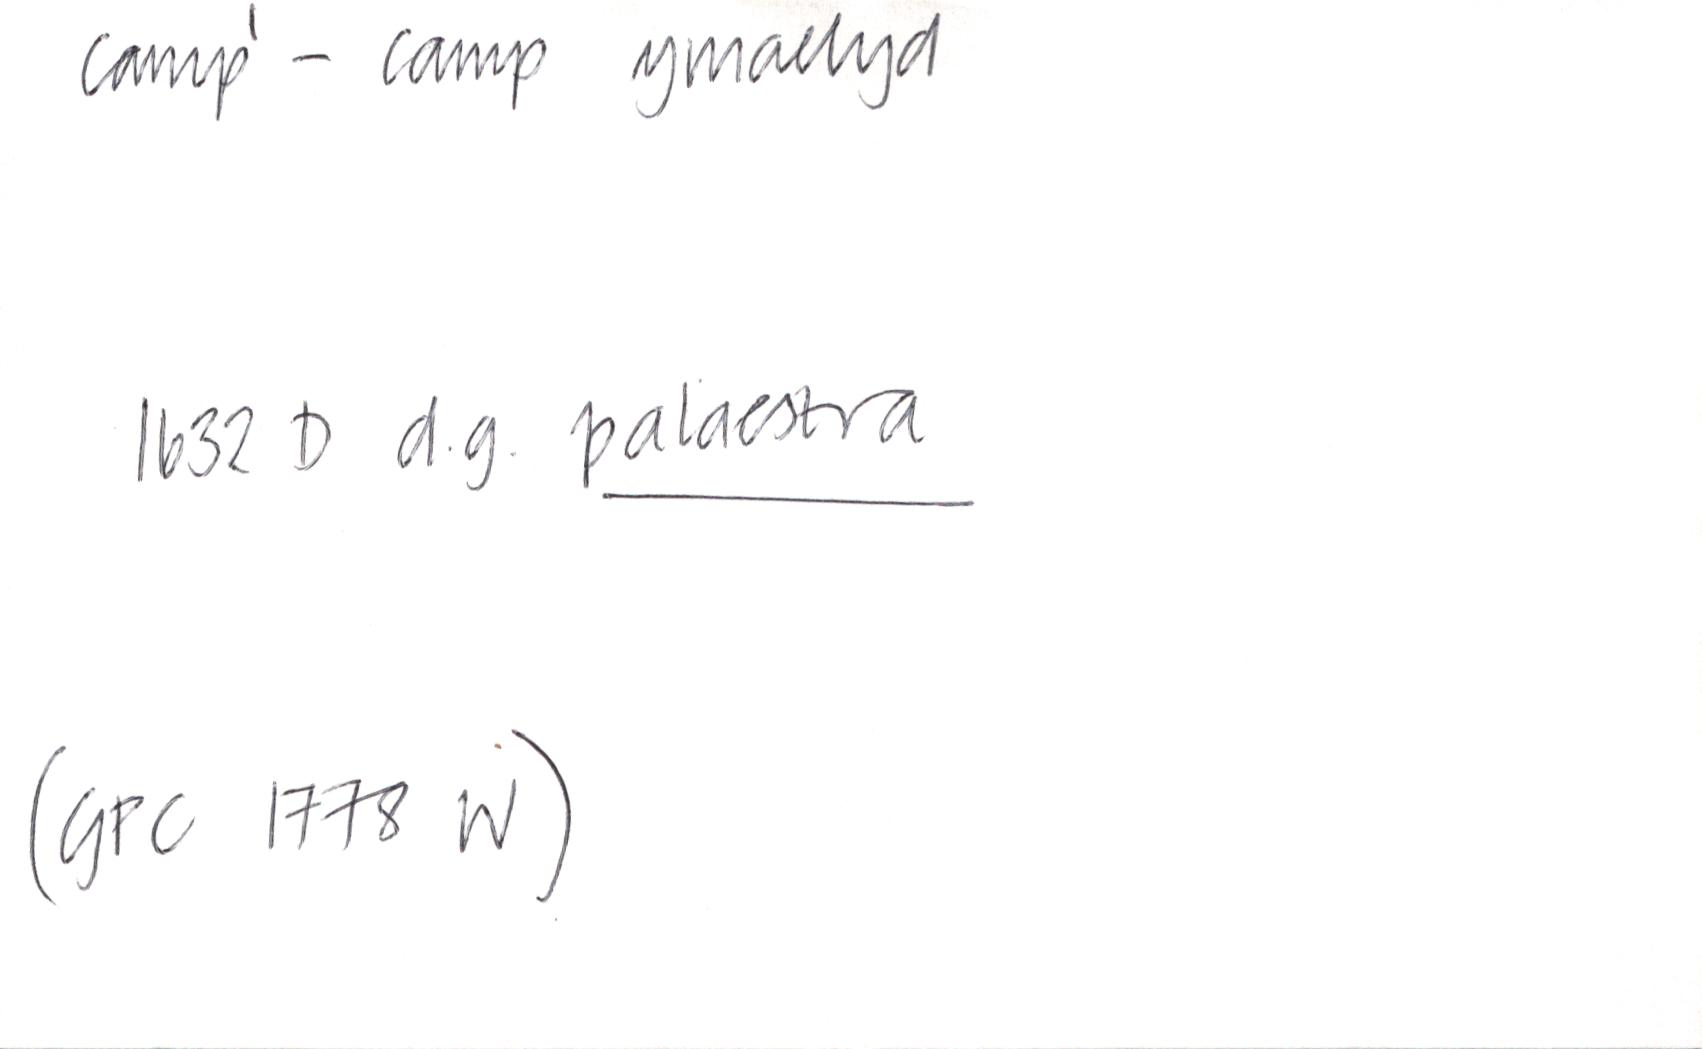 camp¹ - camp ymaelyd
1632 D d.g. palaestra
(GPC 1778 W)